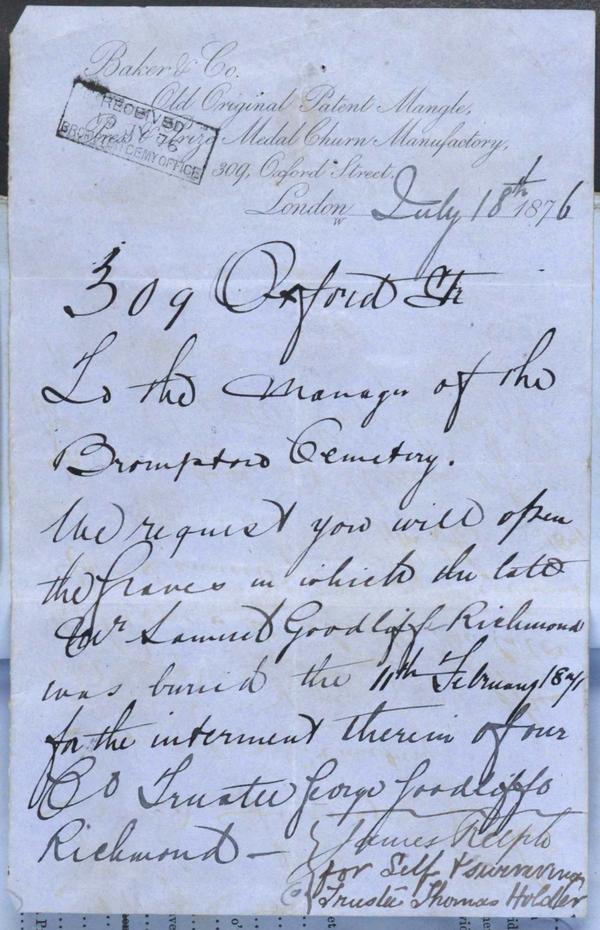 Baker & Co.
Old Original Patent Mangle,
Prize Medal Churn Manufactory,
309, Oxford Street.
London
W
July 18th 1876
RECEIVED
19 JY 76
BROMPTON CEMY OFFICE
309 Oxford Str
To the Manager of the
Brompton Cemetery.
We request you will open
the Graves in which the late
Mr Samuel Goodliffe Richmond
was buried the 11th February 1871
for the interment therein of our
Co Trustee George Goodliffe
Richmond —
James Relph
for Self & surviving
Trustee Thomas Holdler